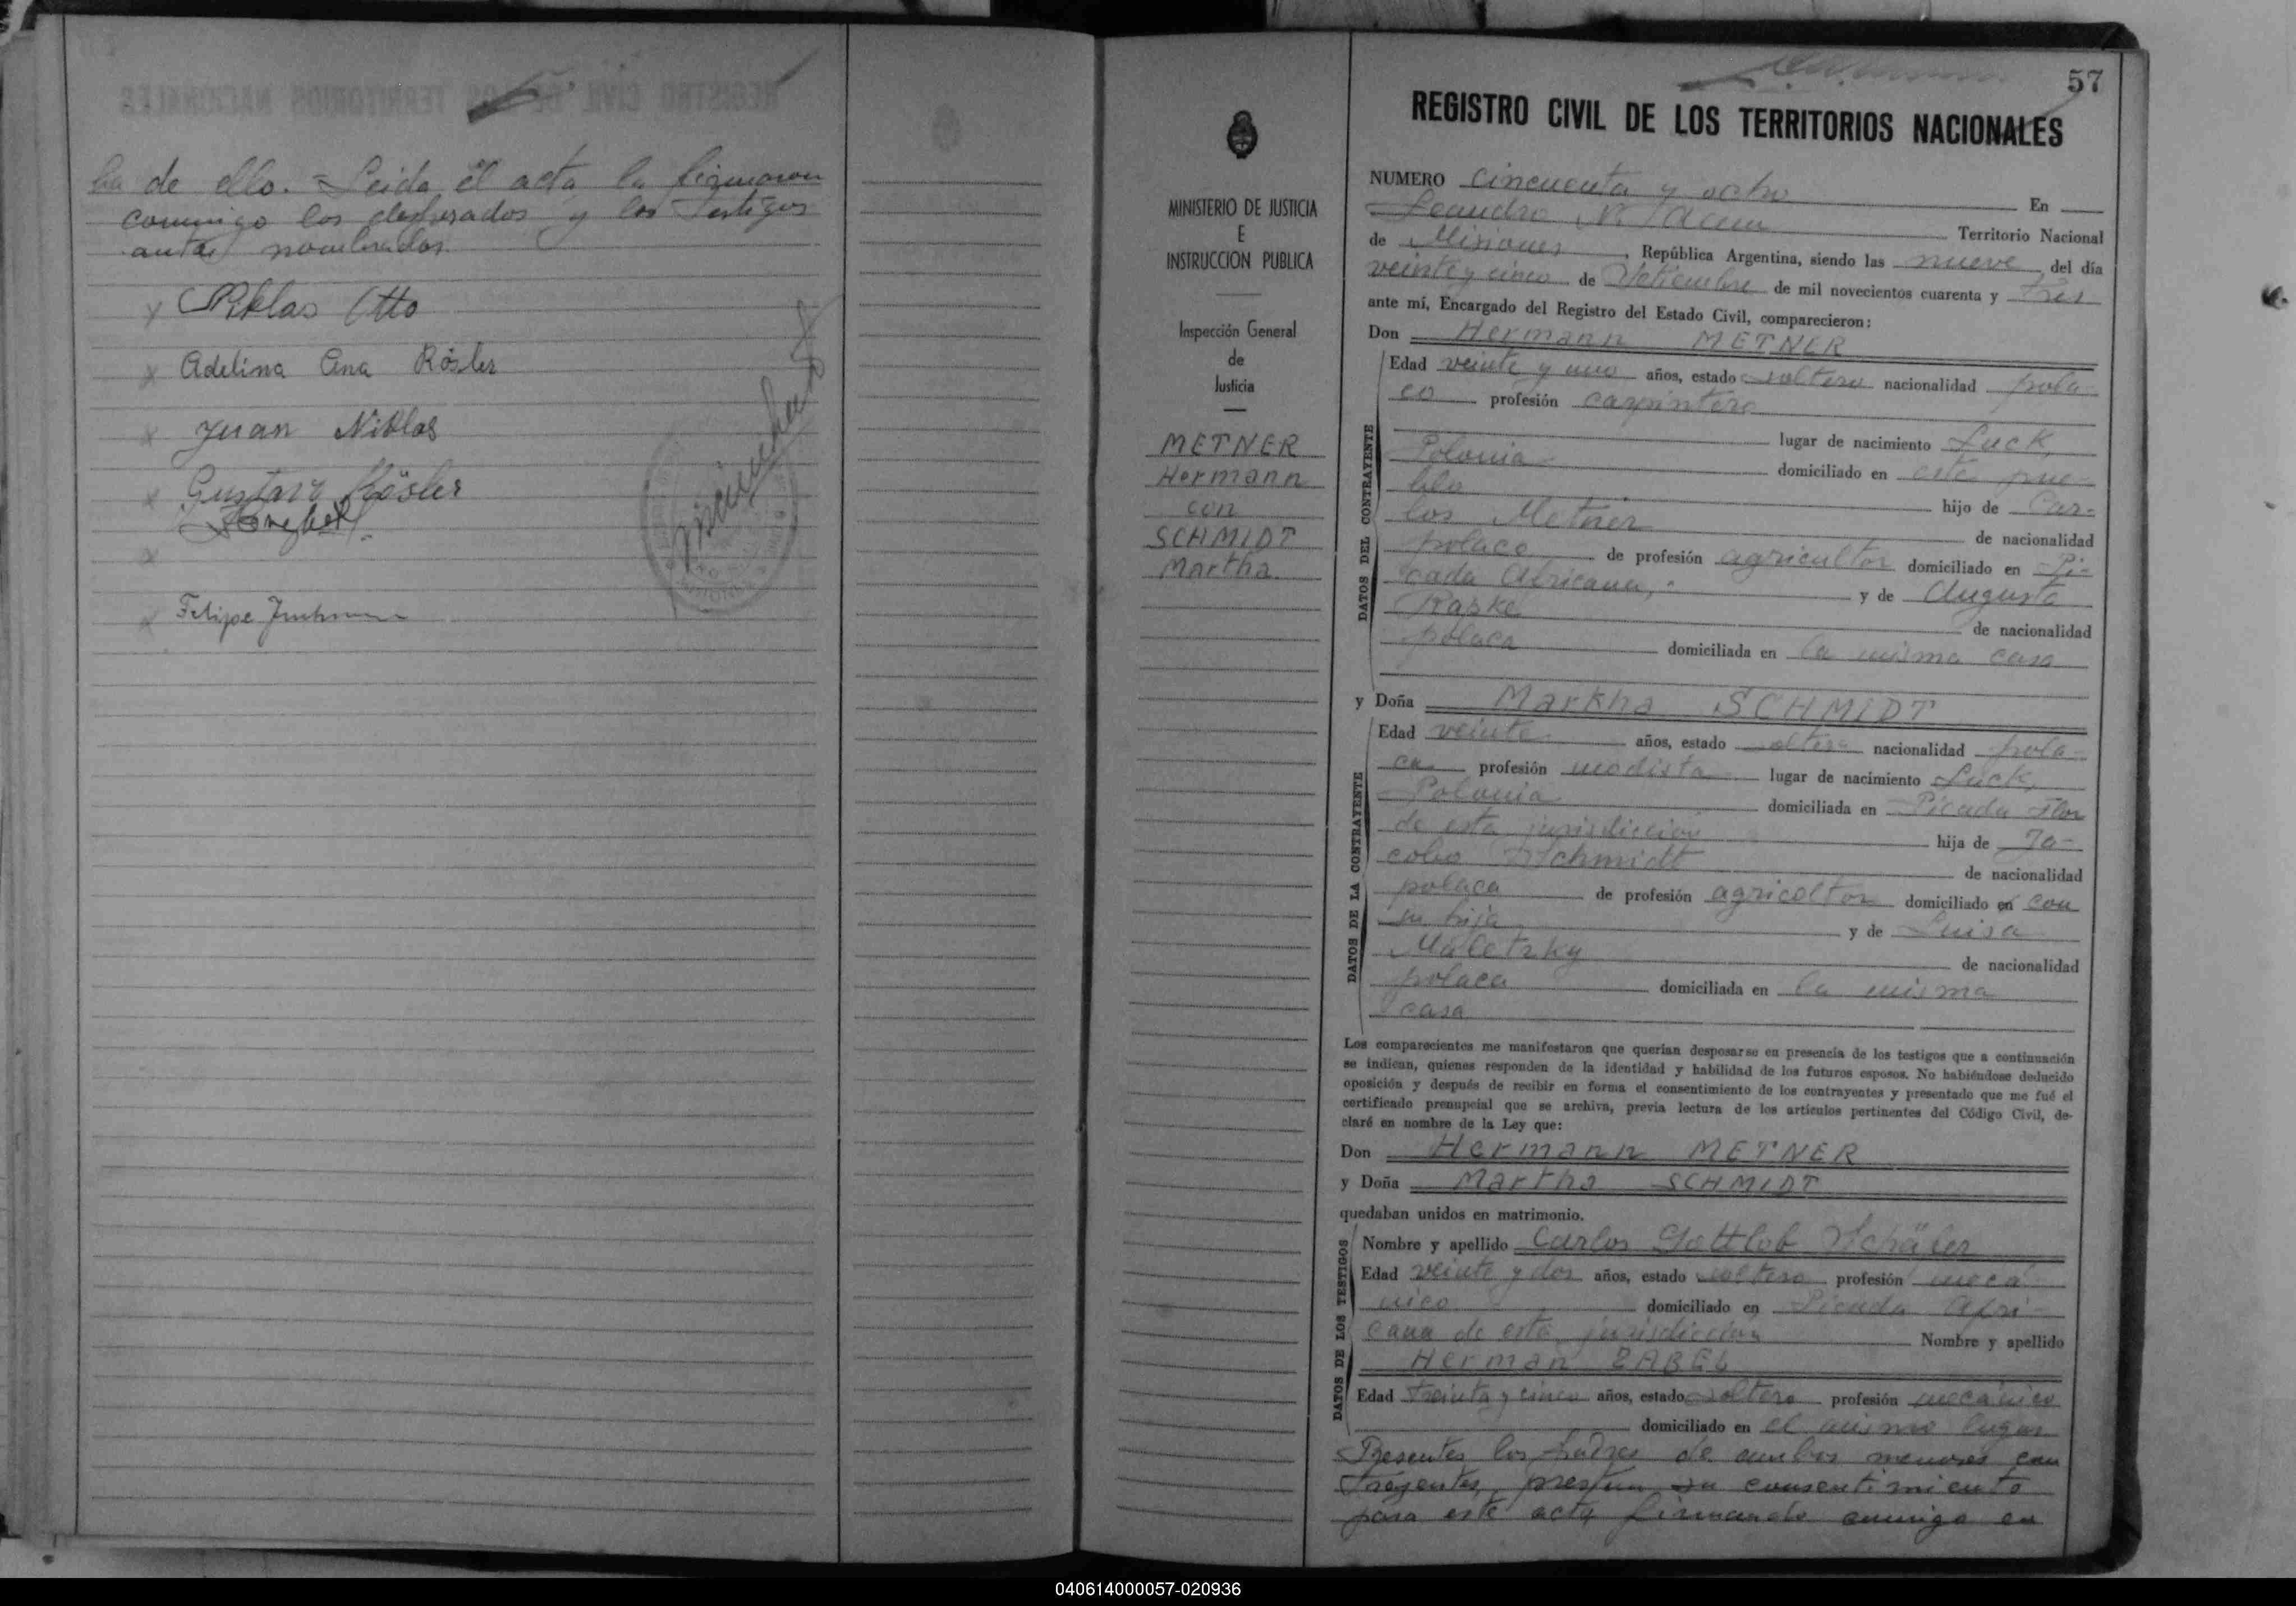 REGISTRO CIVIL DE LOS TERRITORIOS NACIONALES
de ello. = Leida el acta, la firmaron
conmigo los desposados y los testigos
antes nombrados.
Niklas Otto
Adelina Ana Rösler
Juan Niklas
Gustav Rösler
Felipe
MINISTERIO DE JUSTICIA
E
INSTRUCCION PUBLICA
Inspección General
de
Justicia
METNER
Hermann
con
SCHMIDT
Martha
57
REGISTRO CIVIL DE LOS TERRITORIOS NACIONALES
NUMERO cincuenta y ocho En
Leandro N. Alem Territorio Nacional
de Misiones, República Argentina, siendo las nueve del día
veinte y cinco de Setiembre de mil novecientos cuarenta y tres
ante mí, Encargado del Registro del Estado Civil, comparecieron:
Don Hermann METNER
DATOS DEL CONTRAYENTE
Edad veinte y uno años, estado soltero nacionalidad pola-
co profesión carpintero
lugar de nacimiento Luck,
Polonia domiciliado en este pue-
blo hijo de Car-
los Metner de nacionalidad
polaco de profesión agricultor domiciliado en Pi-
cada Africana, y de Augusta
Raske de nacionalidad
polaca domiciliada en la misma casa
y Doña Martha SCHMIDT
DATOS DE LA CONTRAYENTE
Edad veinte años, estado soltera nacionalidad pola-
ca profesión modista lugar de nacimiento Luck,
Polonia domiciliada en Picada Flor
de esta jurisdiccion hija de Ja-
cobo Schmidt de nacionalidad
polaca de profesión agricoltor domiciliado en con
su hija y de Luisa
Maletzky de nacionalidad
polaca domiciliada en la misma
casa
Los comparecientes me manifestaron que querían desposarse en presencia de los testigos que a continuación
se indican, quienes responden de la identidad y habilidad de los futuros esposos. No habiéndose deducido
oposición y después de recibir en forma el consentimiento de los contrayentes y presentado que me fué el
certificado prenupcial que se archiva, previa lectura de los artículos pertinentes del Código Civil, de-
claré en nombre de la Ley que:
Don Hermann METNER
y Doña Martha SCHMIDT
quedaban unidos en matrimonio.
DATOS DE LOS TESTIGOS
Nombre y apellido Carlos Gottlob Schäfer
Edad veinte y dos años, estado soltero profesión mecá-
nico domiciliado en Picada Afri-
cana de esta jurisdiccion Nombre y apellido
Herman ZABEL
Edad treinta y cinco años, estado soltero profesión mecánico
domiciliado en el mismo lugar
Presentes los padres de ambos menores con
trayentes, prestan su consentimiento
para este acto, firmando conmigo en
040614000057-020936